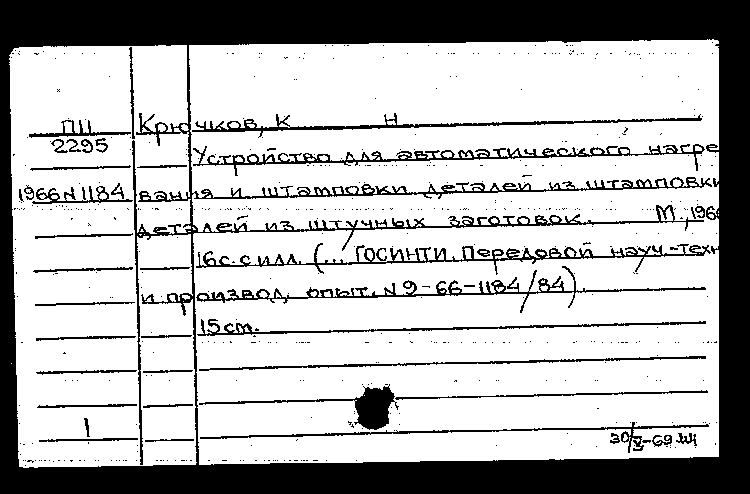 ПII Крючков, К Н
2295
Устройство для автоматического нагре
1966 N 1184 вания и штамповки деталей из штамповки
деталей из штучных заготовок. М, 1966
16с. с илл. (... ГОСИНТИ. Передовой науч.-техн
и производ. опыт. N 9-66-1184/84).
15 см.
1
30/X-69